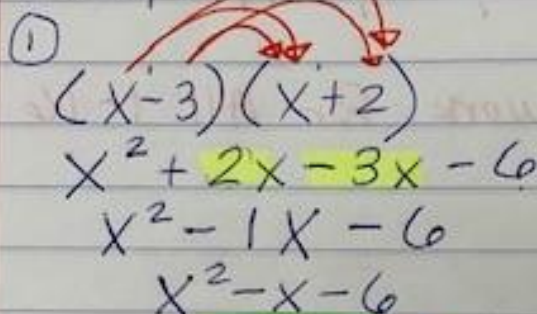 ①
(x-3)(x+2)
x² + 2x - 3x - 6
x² - 1x - 6
x² - x - 6